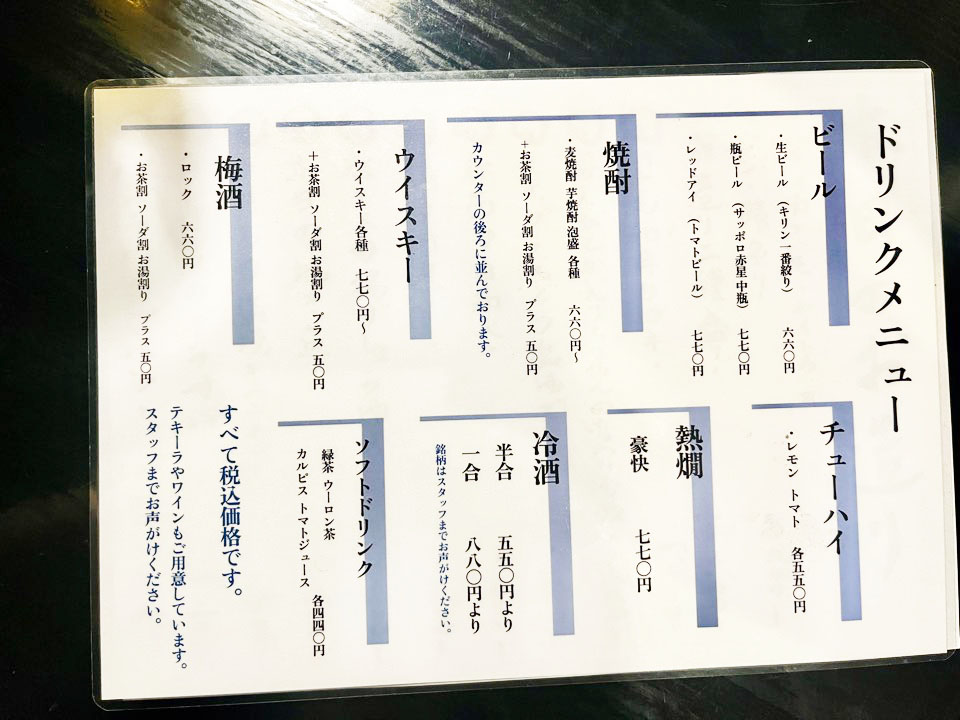 ドリンクメニュー
ビール
・生ビール （キリン一番絞り） 六六〇円
・瓶ビール （サッポロ赤星 中瓶） 七七〇円
・レッドアイ （トマトビール） 七七〇円
焼酎
・麦焼酎 芋焼酎 泡盛 各種 六六〇円～
＋お茶割 ソーダ割 お湯割り プラス 五〇円
カウンターの後ろに並んでおります。
ウイスキー
・ウイスキー各種 七七〇円～
＋お茶割 ソーダ割 お湯割り プラス 五〇円
梅酒
・ロック 六六〇円
・お茶割 ソーダ割 お湯割り プラス 五〇円
チューハイ
・レモン トマト 各五五〇円
熱燗
豪快 七七〇円
冷酒
半合 五五〇円より
一合 八八〇円より
銘柄はスタッフまでお声がけください。
ソフトドリンク
緑茶 ウーロン茶
カルピス トマトジュース 各四四〇円
すべて税込価格です。
テキーラやワインもご用意しています。
スタッフまでお声がけください。